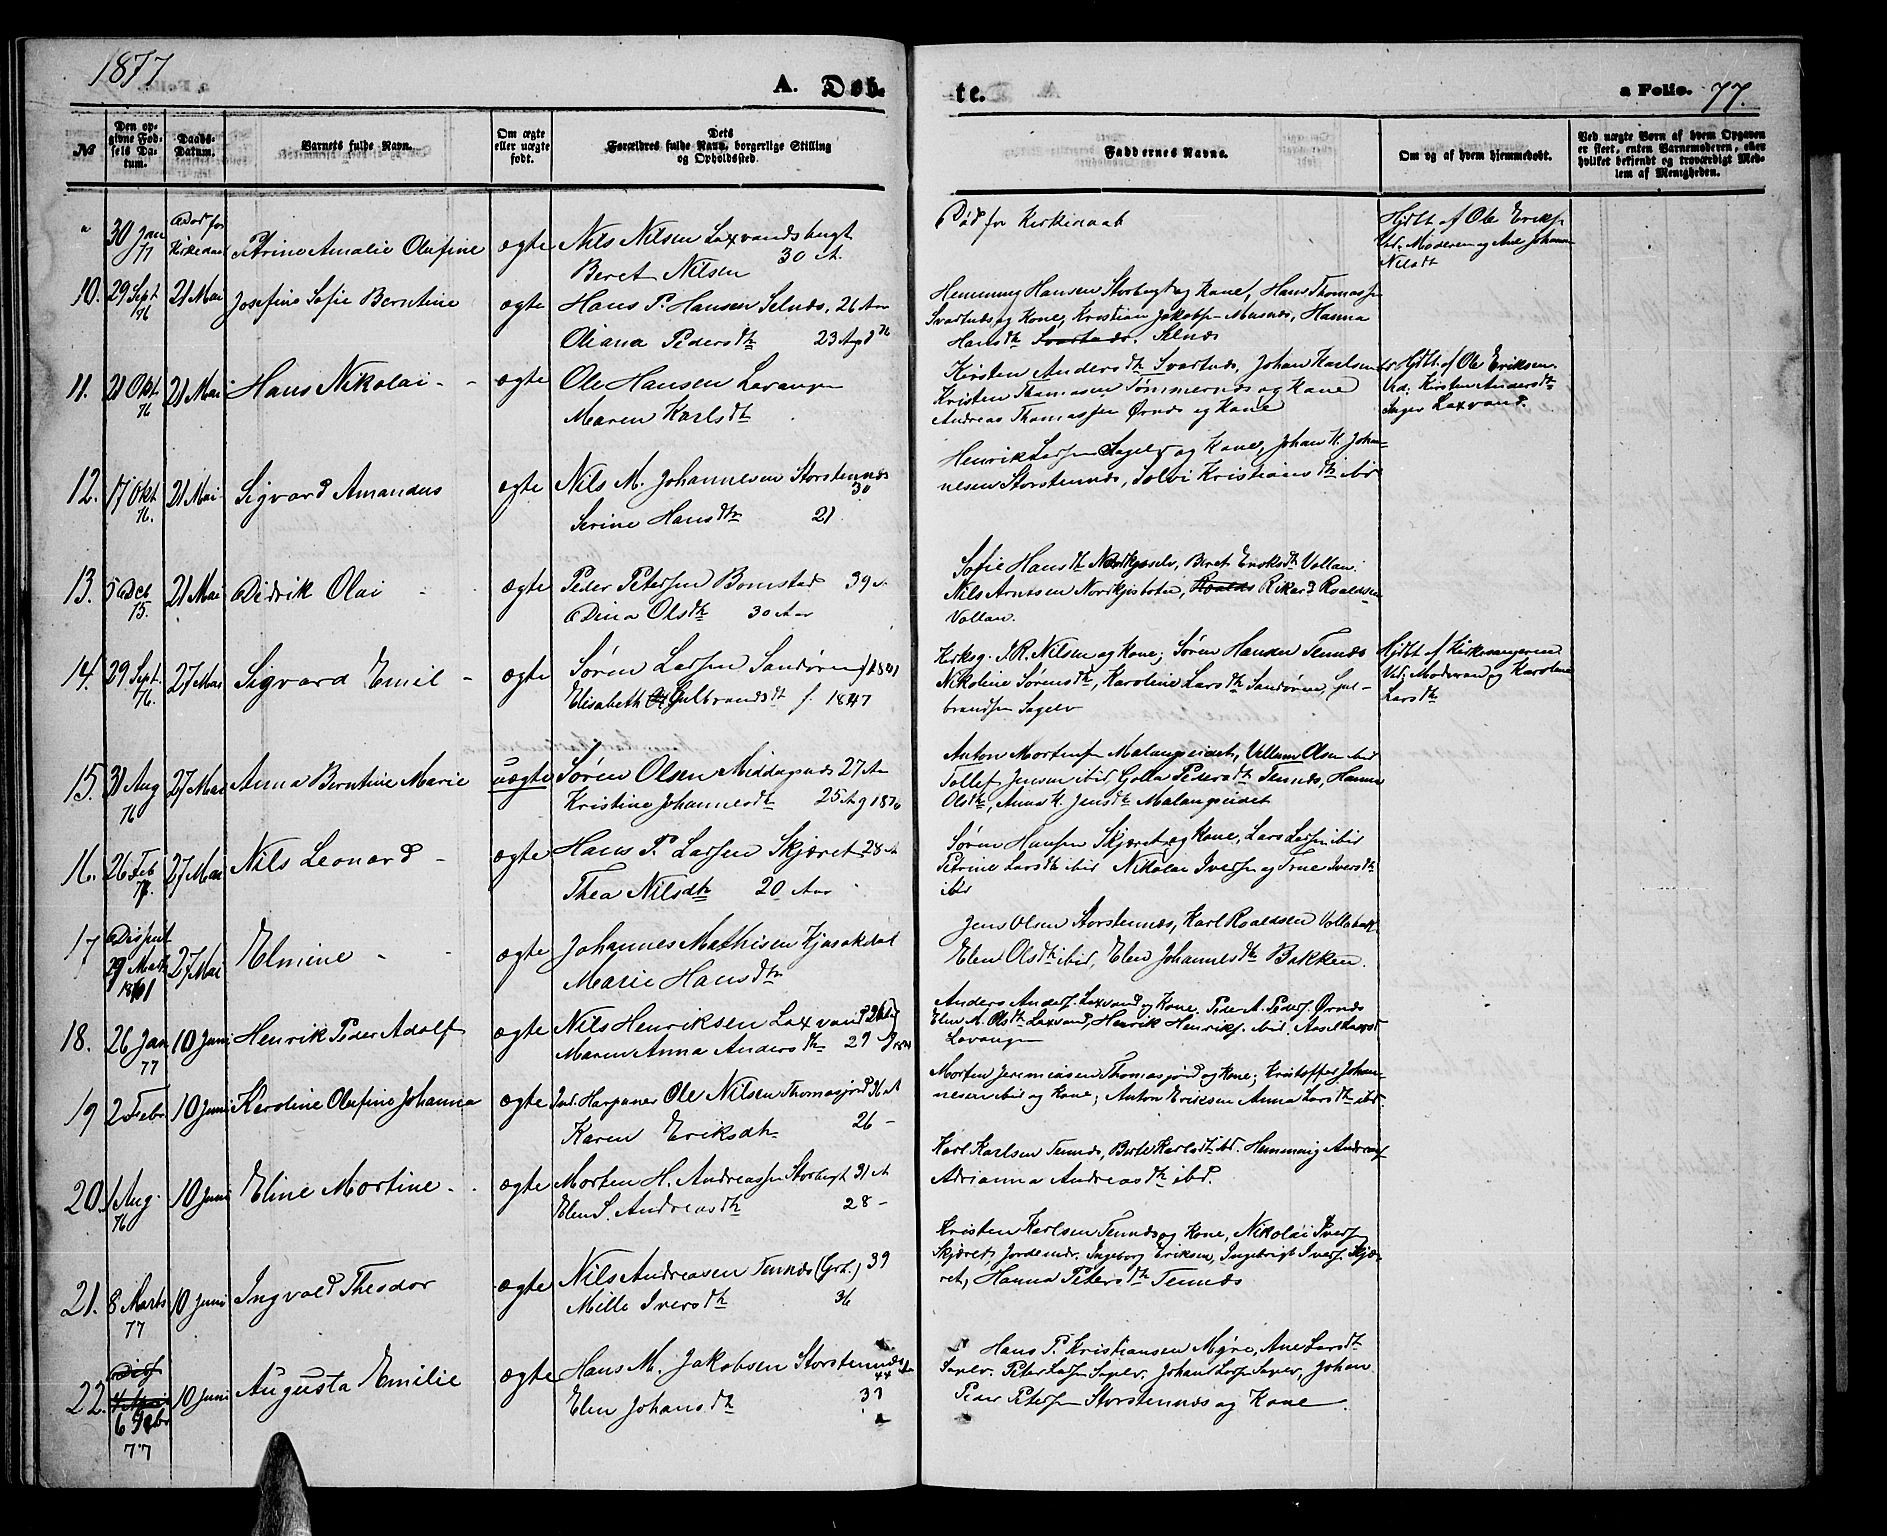 1877
A. Døb-
te.
a Folio. 77.
№
Den op-
givne Fød-
sels Da-
tum.
Daabs-
Datum.
Barnets fulde Navn.
Om ægte
eller uægte
født.
Dets
Forældres fulde Navn, borgerlige Stilling
og Opholdssted.
Faddernes Navne.
Om og af hvem hjemmedøbt.
Ved uægte Børn af hvem Opgaven
er skeet, enten Barnemoderen, eller
hvilket bekjendt og troværdigt Med-
lem af Menigheden.
" 30 Jan 77 Død før Kirkedaab Petrine Amalie Olufine ægte Nils Nilsen Laxvandsbugt
Beret Nilsen 30 A.
Død før Kirkedaab
Hjdbt af Ole Eriks.
Vid: Moderen og Ane Johann
Nilsdt
10. 29 Sept 76 21 Mai Josefine Sofie Berntine ægte Hans P. Hansen Selnes, 26 Aar
Oliana Pedersdtr 23 Aar
Hemming Hansen Storbugt og Kone, Hans Thomass.
Svartnes og Kone, Kristian Jakobsen Masnes, Hanna
Hansdtr Svartnes. Selnes
11. 21 Okt 76 21 Mai Hans Nikolai - - ægte Ole Hansen Lavangen
Maren Karlsdtr
Kirsten Andersdtr Svartnes, Johan Karlsen
Kristen Thomasen Tømmernes og Kone
Andreas Thomassen Ørnes og Kone
Hjdbt. af Ole Eriksen.
Vid: Kirsten Andersdtr
Inger Laxvand.
12. 17 Okt 76. 21 Mai Sigvard Amandus ægte Nils M. Johannesen Storstennes
30
Serine Hansdtr 21
Henrik Larsen Sagelv og Kone, Johan K. Johan-
nesen Storstennes, Solvi Kristiansdtr ibid
13. 5 Dec 75. 21 Mai Didrik Olai - ægte Peder Petersen Bomstad 39 A.
Dina Olsdtr 30 Aar
Sofie Hansdtr Nordkjoselv, Beret Eriksdtr Vollan.
Nils Arntsen Nordkjosbotn, Roalds Rikard Roaldsen
Vollan.
14. 29 Sept. 76. 27 Mai Sigvard Emil - ægte Søren Larsen Sandøren f 1841
Elisabeth Gulbrandsdt f. 1847
Kirkesg. J. R. Nilsen og Kone; Søren Hansen Tennes
Nikoline Sørensdtr, Karoline Larsdtr Sandøren, Gul-
brandsen Sagelv
Hjdbt af Kirkesangeren
Vid: Moderen og Karoline
Larsdtr
15. 31 Aug 76 27 Mai Anna Berntine Marie uægte Søren Olsen Middagsnes 27 Aar
Kristine Johannesdtr 25 A. g 1876
Anton Mortensen Malangseidet, Vellum Olsen ibid
Tollef Jensen ibid, Golla Pedersdtr Tennes, Hanna
Olsdtr, Anna K. Jensdtr Malangseidet
16. 26 Feb 77. 27 Mai Nils Leonard - ægte Hans P. Larsen Skjæret 28 A
Thea Nilsdtr 20 Aar
Søren Hansen Skjæret og Kone, Lars Larsen ibid
Petrine Larsdtr ibid Nikolai Iversen og Trine Iversdtr
ibid
17 29 Marts 1861 27 Mai Elmine - - ægte Johannes Mathisen Kjosakdal
Marie Hansdtr
Jens Olsen Storstennes, Karl Roaldsen Vollabak.
Elen Olsdtr ibid, Elen Johannesdtr Bakken.
18. 26 Jan 77 10 Juni Henrik Peder Adolf ægte Nils Henriksen Laxvand
Maren Anna Andersdtr 29
Anders Anders. Laxvand og Kone. Peder A. Peders. Ørnes
Elen A. Olsdtr Laxvand, Henrik Henriks. ibid. Axel
Lavangen
19 2 Febr 10 Juni Karoline Olufine Johanna ægte Ind. Harpuner Ole Nilsen Thomasjord 36 A
Karen Eriksdtr 26 -
Morten Jeremiasen Thomasjord og Kone; Kristoffer Johan-
nesen ibid og Kone; Anton Eriksen Anna Larsdtr ibid.
20. 1 Aug. 76 10 Juni Eline Mortine - ægte Morten H. Andreassen Storbugt 31 A
Elen S. Andreasdtr 28 -
Karl Karlsen Tennes, Berte Karlsdtr ibd. Hemming Andreas.
Adrianna Andreasdtr ibid.
21. 8 Marts 77 10 Juni Ingvald Theodor ægte Nils Andreasen Tennes (Grt.) 39
Mille Iversdtr 36
Kristen Karlsen Tennes og Kone, Nikolai Ivers.
Skjæret, Jordemdr. Ingeborg Eriksen, Ingebrigt Ivers. Skjæ-
ret, Hanna Petersdtr Tennes
22. 6 Febr 77 10 Juni Augusta Emilie ægte Hans M. Jakobsen Storstennes
44
Elen Johansdtr 37
Hans P. Kristiansen Myre, Ane Larsdtr
Sagelv. Peter Larsen Sagelv. Johan Lars. Sagelv, Johan
Peder Petersen Storstennes og Kone.